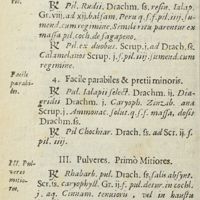 ℞ Pil. Rudii. Drachm. ss. resin. Ialap.
Gr. vij. ad xij. balsam. Peru q. s. f. pil. iiij. sumend. cum regimine. Simile ritu parentur ex
massa pil. coch. de sagapeno.
℞ Pil. ex duobus. Scrup. j. ad Drach. ss.
Calamelanos Scrup. j. f. pil. iiij. sumend. cum
regimine.
Facile
parabi-
les.
4. Facile parabiles & pretii minoris.
℞ Pul. Ialapii select. Drachm. ij. Dia-
gridii Drachm. j. Caryoph. Zinzib. ana
Scrup. j. Ammoniac. solut. q. s. f. massa, dosis
Drachm. ss.
℞ Pil Chochiar. Drach. ss. ad Scr. ij. f.
pil. iiij.
III. Pul-
veres
mitio-
III. Pulveres. Primò Mitiores.
℞ Rhabarb. pul. Drach. ss. salis absynt.
Scr. ss. caryophyll. Gr. ij. f. pul. detur in coch.
j. aq. Cinnam. tenuioru, vel in haustu